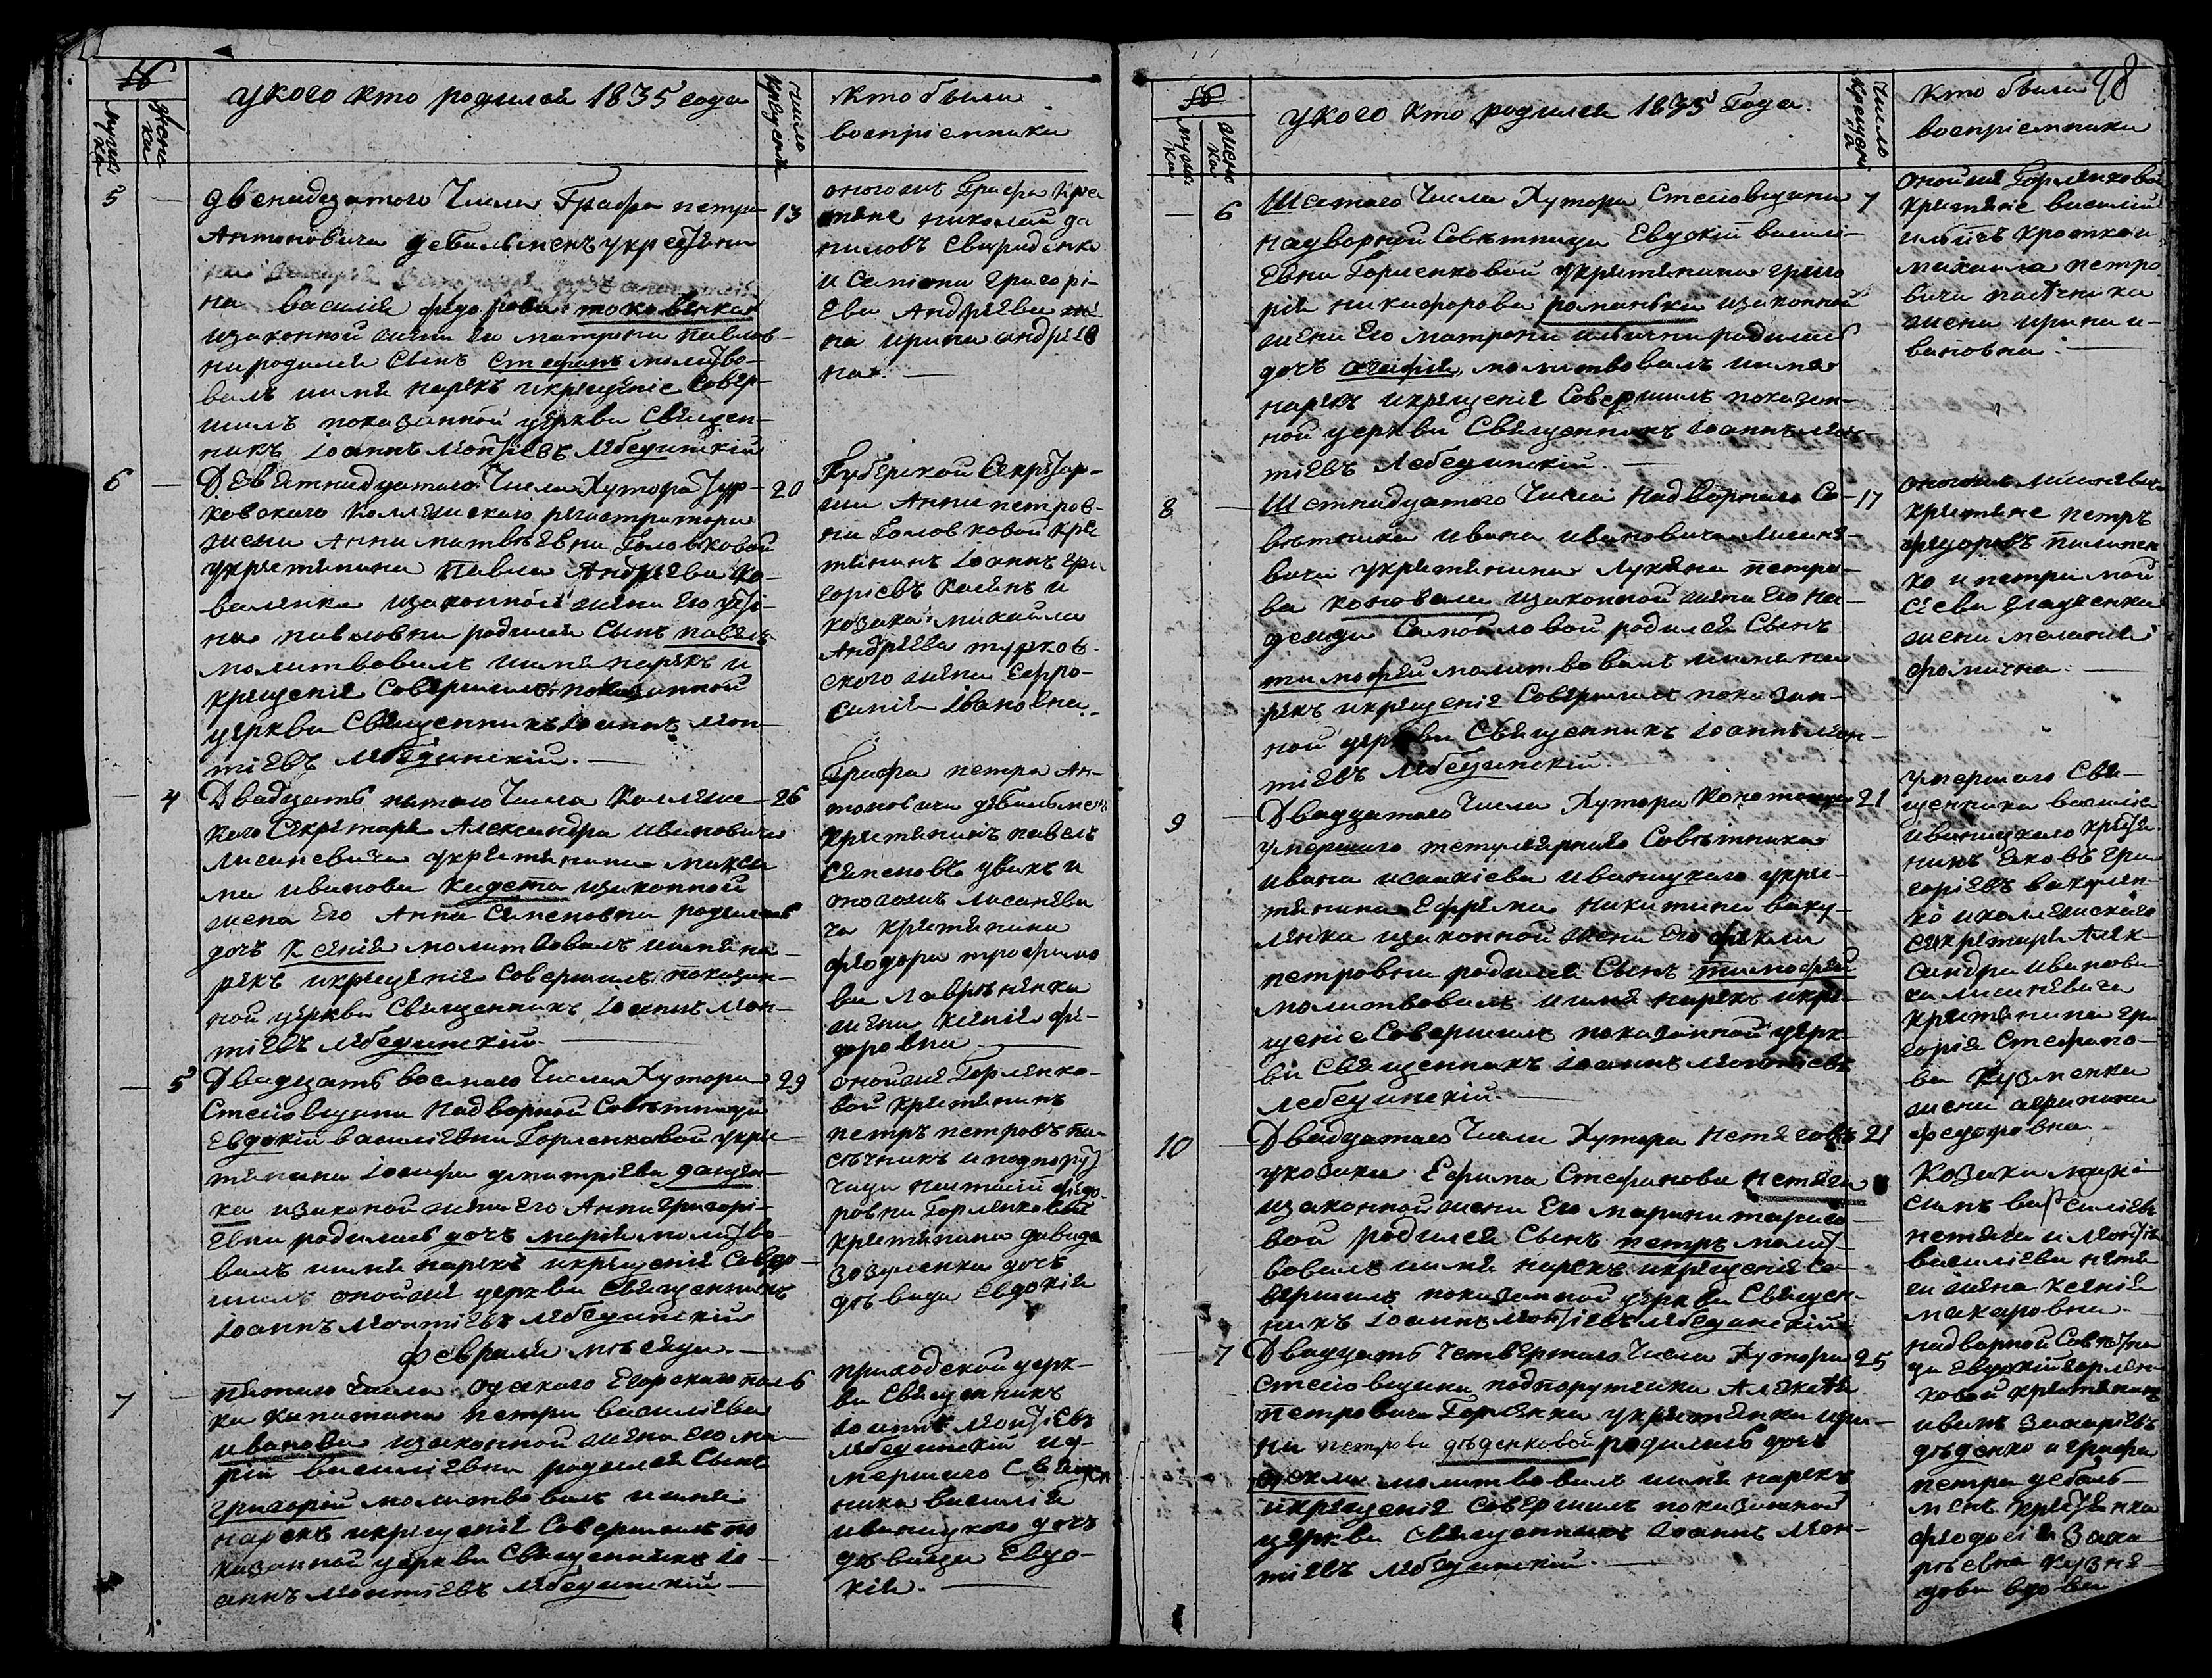 №
мужска
женска
у кого кто родился 1835 года
число крещенія
кто были
воспріемники
5
двенадцатого Числа Графа петра
13
Антоновича дебальменъ укрестяни
на василія федорова токовенка
изаконной жены его матроны павлов-
на родился Сынъ Стефанъ молитво-
валъ имя нарекъ икрещеніе совер-
шилъ показанной церкви Священ-
никъ Іоаннъ Леонтіевъ Лебединскій
оногожъ Графа кре
стяне николай да
ниловъ Свириденко
и Семіона григорі-
ева Андреева же
на ирина андрее
на.
6
Девятнадцатого Числа Хутора Тур-
20
ковского Коллежского регистратора
жены Анны матвѣевны Головковой
укрестянина Павла Андреева Ко-
валенка изаконной жены его усті-
на павловны родился Сынъ павелъ
молитвовалъ имя нарекъ и
крещеніе Совершилъ показанной
церкви Священникъ Іоаннъ Леон-
тіевъ Лебединскій.
Губерской Секретар-
ши Анны петров-
ны Головковой кре
стянинъ Іоаннъ гри
горіевъ и
козака михаила
Андреева турков-
ского жена Ефро-
синія Івановна.
4
Двадцать пятого Числа Коллежс-
26
кого Секретаря Александра ивановича
Лисаневича укрестянина макси
ма иванова кадета изаконной
жены его Анны Семеновны родилась
дочь Ксенія молитвовалъ имя на-
рекъ икрещеніе Совершилъ показан-
ной церкви Священникъ Іоаннъ Леон-
тіевъ Лебединскій.
Графа петра Ан-
тоновича дебальмен
крестянинъ павелъ
Семеновъ увикъ и
оногожъ Лисанева
ча крестянина
феодора трофимо
ва Лавриненка
жена Ксенія фе-
доровна
5
Двадцать восмаго Числа Хутора
29
Стеновщины Надворной Совѣтницы
Евдокіи василіевны Горленковой укре-
стянина Іосифа димитріева данилен-
ка изаконой жены его Анны григорі-
евны родилась дочь марія молитво-
валъ имя нарекъ икрещеніе Совер-
шилъ онойже церкви Священникъ
Іоаннъ Леонтіевъ Лебединскій
онойже Горленко-
вой крестянинъ
петръ петровъ па-
сѣчникъ и подпорут
чицы федо-
ровны Горленковой
крестянина давида
зозуленка дочь
дѣвица Евдокія
февраля мѣсяца.
7
пятаго Числа Одеского Егорского пол
6
ка капитана петра василіева
иванова изаконной жены его ма-
ріи василіевны родился Сынъ
григорій молитвовалъ имя
нарекъ икрещеніе Совершилъ по
казанной церкви Священникъ Іо-
аннъ Леонтіевъ Лебединскій
приходской церк-
ви Священникъ
Іоаннъ Леонтіевъ
Лебединскій и у-
мершаго Священ
ника василія
иваницкого дочь
дѣвица Евдо-
кія.
98
№
мужска
женска
у кого кто родился 1835 Года.
число крещенія
Кто были
воспріемники
6
Шестого Числа Хутора Стеновщина
7
надворной Совѣтницы Евдокіи василі-
евны Горленковой укрестянина григо
рія никифорова романька изаконной
жены его матроны родилась
дочь агафія, молитвовалъ имя
нарекъ икрещеніе Совершилъ показан-
ной церкви Священникъ Іоаннъ Леон-
тіевъ Лебединскій.
онойже Горленковой
крестяне василій
кротко и
михаила петро
вича пасѣчника
жена ирина и-
вановна.
8
Шестнадцатого Числа Надворного Со-
17
вѣтника ивана ивановича Лисане-
вича укрестянина Лукяна петро-
ва коновала изаконной жены его На-
дежды Самойловой родился Сынъ
тимофей молитвовалъ имя на
рекъ икрещеніе Совершилъ показан-
ной церкви Священникъ Іоаннъ Леон-
тіевъ Лебединскій.
оногожъ Лисаневича
крестяне петръ
феодоровъ пилипен
ко и петра мой
сѣева гладченка
жена меланія
фомична.
9
Двадцатого Числа Хутора
21
умершаго титулярного Совѣтника
ивана исаакіева иваницкого укре-
стянина Ефрема никитина ваку-
ленка изаконной жены его феклы
петровны родился Сынъ тимофей
молитвовалъ имя нарекъ икре-
щеніе Совершилъ показанной церк-
ви Священникъ Іоаннъ Леонтіевъ
Лебединскій.
умершаго Свя-
щенника василія
иваницкого крестя-
нинъ Яковъ гри
горіевъ вакулен-
ко и коллежского
секретаря Алек-
сандра иванови
ча Лисаневича
крестянина гри
горія Стефано-
ва Кузменка
жена агрипина
федоровна
10
Двадцатого Числа Хутора Нетяговъ
21
укозака Ефима Стефанова Нетяги
изаконной жены его марины тарасо-
вой родился Сынъ петръ молит-
вовалъ имя нарекъ икрещеніе Со-
вершилъ показанной церкви Священ-
никъ Іоаннъ Леонтіевъ Лебединскій
Козаки макі-
симъ василіевъ
нетяга и Леонтія
василіева нетя
ги жена Ксенія
макаровна.
7
Двадцать Четвертого Числа Хутора
25
Стеновщина подпорутчика Алексѣя
Петровича Горленка укрестянки ири-
ны петровы дѣденковой родилась дочь
фекла молитвовалъ имя нарекъ
икрещеніе Совершилъ показанной
церкви Священникъ Іоаннъ Леон-
тіевъ Лебединскій.
надворной Совѣтни
цы Евдокіи горлен
ковой крестянинъ
иванъ захаріевъ
дѣденко и графа
петра дебаль-
менъ крестянка
феодосія Заха
ріевна Кузне-
цова вдова